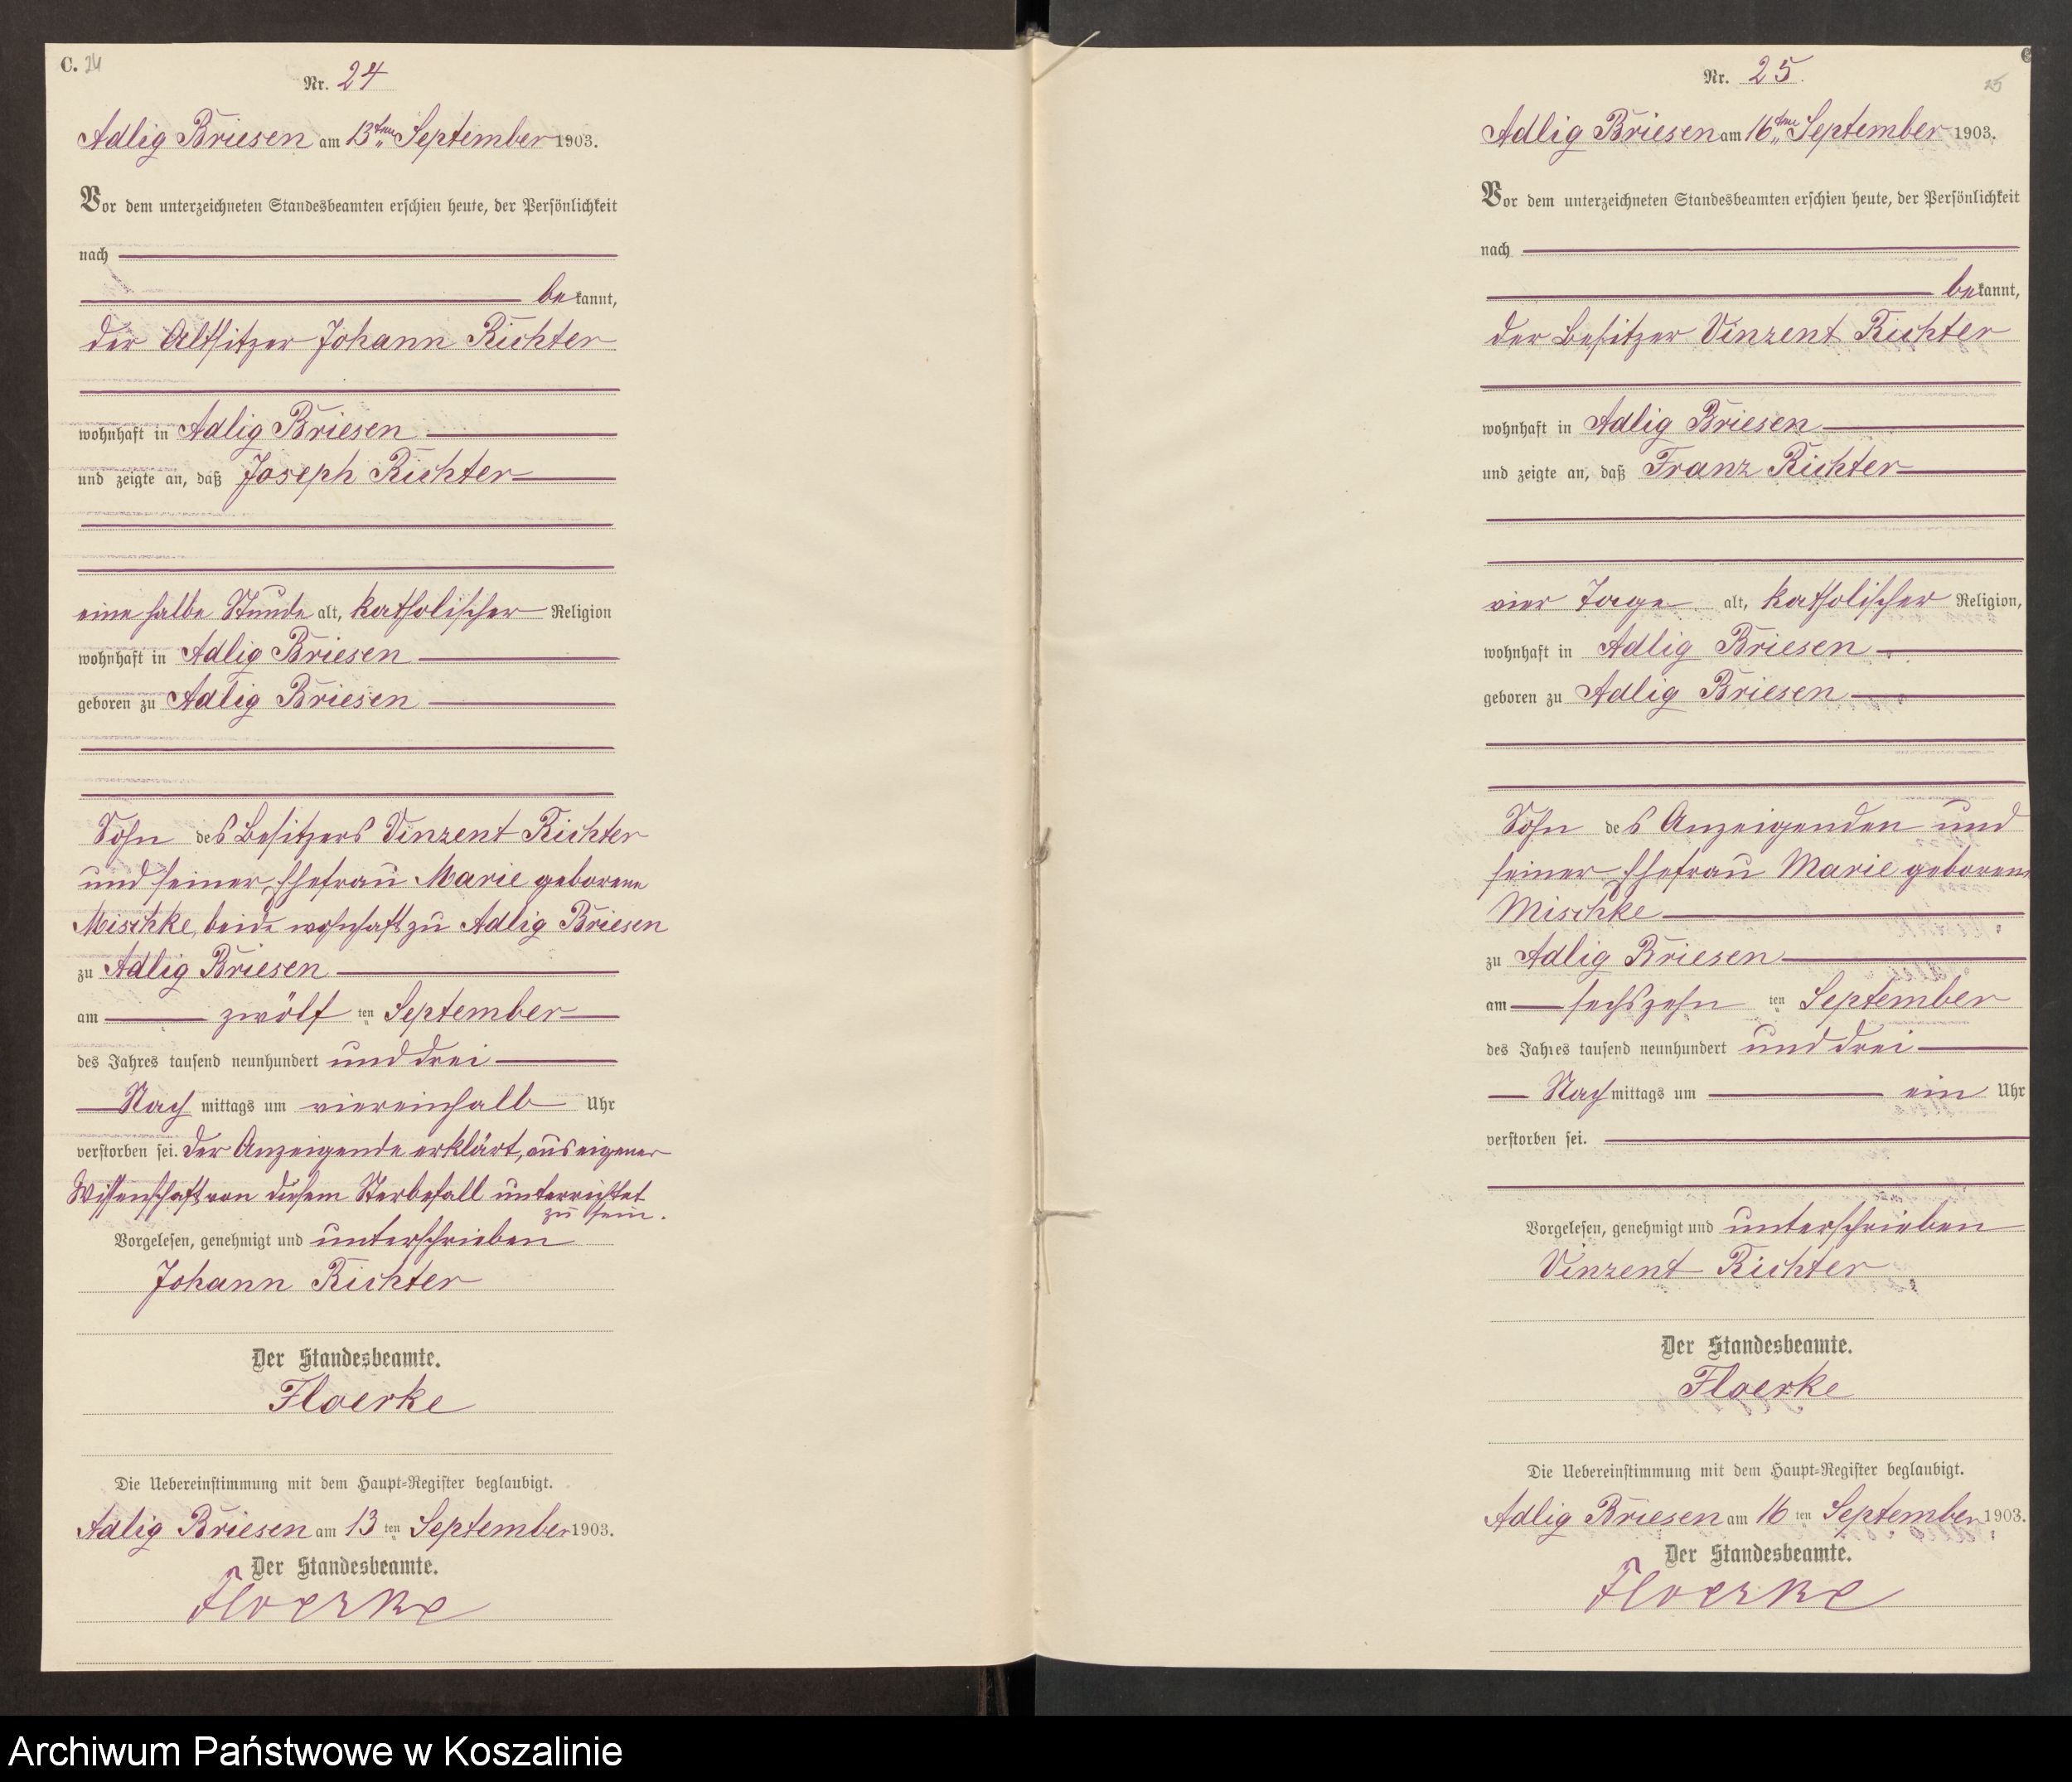 C. 24
Nr. 24
Adlig Briesen am 13ten September 1903.
Vor dem unterzeichneten Standesbeamten erschien heute, der Persönlichkeit
nach
bekannt,
der Altsitzer Johann Richter
wohnhaft in Adlig Briesen
und zeigte an, daß Joseph Richter
eine halbe Stunde alt, katholischer Religion
wohnhaft in Adlig Briesen
geboren zu Adlig Briesen
Sohn des Besitzers Vinzent Richter
und seiner Ehefrau Marie geborene
Mischke, beide wohnhaft zu Adlig Briesen
zu Adlig Briesen
am zwölf ten September
des Jahres tausend neunhundert und drei
Nach mittags um viereinhalb Uhr
verstorben sei. Der Anzeigende erklärt, aus eigener
Wissenschaft von diesem Sterbefall unterrichtet
zu sein.
Vorgelesen, genehmigt und unterschrieben
Johann Richter
Der Standesbeamte.
Floerke
Die Uebereinstimmung mit dem Haupt-Register beglaubigt.
Adlig Briesen am 13 ten September 1903.
Der Standesbeamte.
Floerke
Nr. 25.
25
Adlig Briesen am 16ten September 1903.
Vor dem unterzeichneten Standesbeamten erschien heute, der Persönlichkeit
nach
bekannt,
der Besitzer Vinzent Richter
wohnhaft in Adlig Briesen
und zeigte an, daß Franz Richter
vier Tage alt, katholischer Religion,
wohnhaft in Adlig Briesen
geboren zu Adlig Briesen
Sohn des Anzeigenden und
seiner Ehefrau Marie geborene
Mischke
zu Adlig Briesen
am sechszehn ten September
des Jahres tausend neunhundert und drei
Nach mittags um ein Uhr
verstorben sei.
Vorgelesen, genehmigt und unterschrieben
Vinzent Richter
Der Standesbeamte.
Floerke
Die Uebereinstimmung mit dem Haupt-Register beglaubigt.
Adlig Briesen am 16 ten September 1903.
Der Standesbeamte.
Floerke
Archiwum Państwowe w Koszalinie